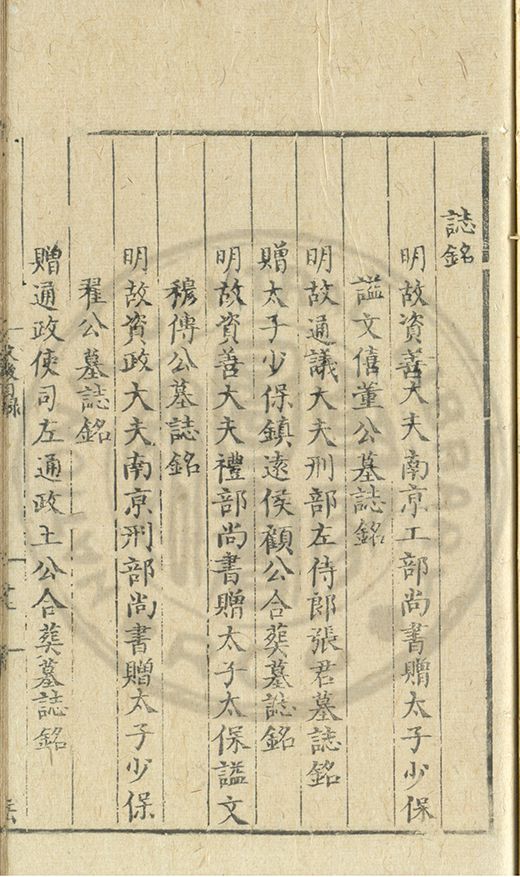 誌銘
明故資善大夫南京工部尚書贈太子少保
謚文僖董公墓誌銘
明故通議大夫刑部左侍郎張君墓誌銘
贈太子少保鎮遠侯顧公合葬墓誌銘
明故資善大夫禮部尚書贈太子太保謚文
穆傅公墓誌銘
明故資政大夫南京刑部尚書贈太子少保
翟公墓誌銘
贈通政使司左通政王公合葬墓誌銘
目錄